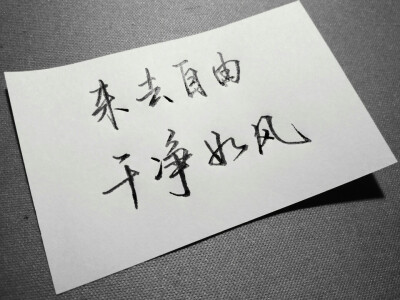 来去自由
干净如风